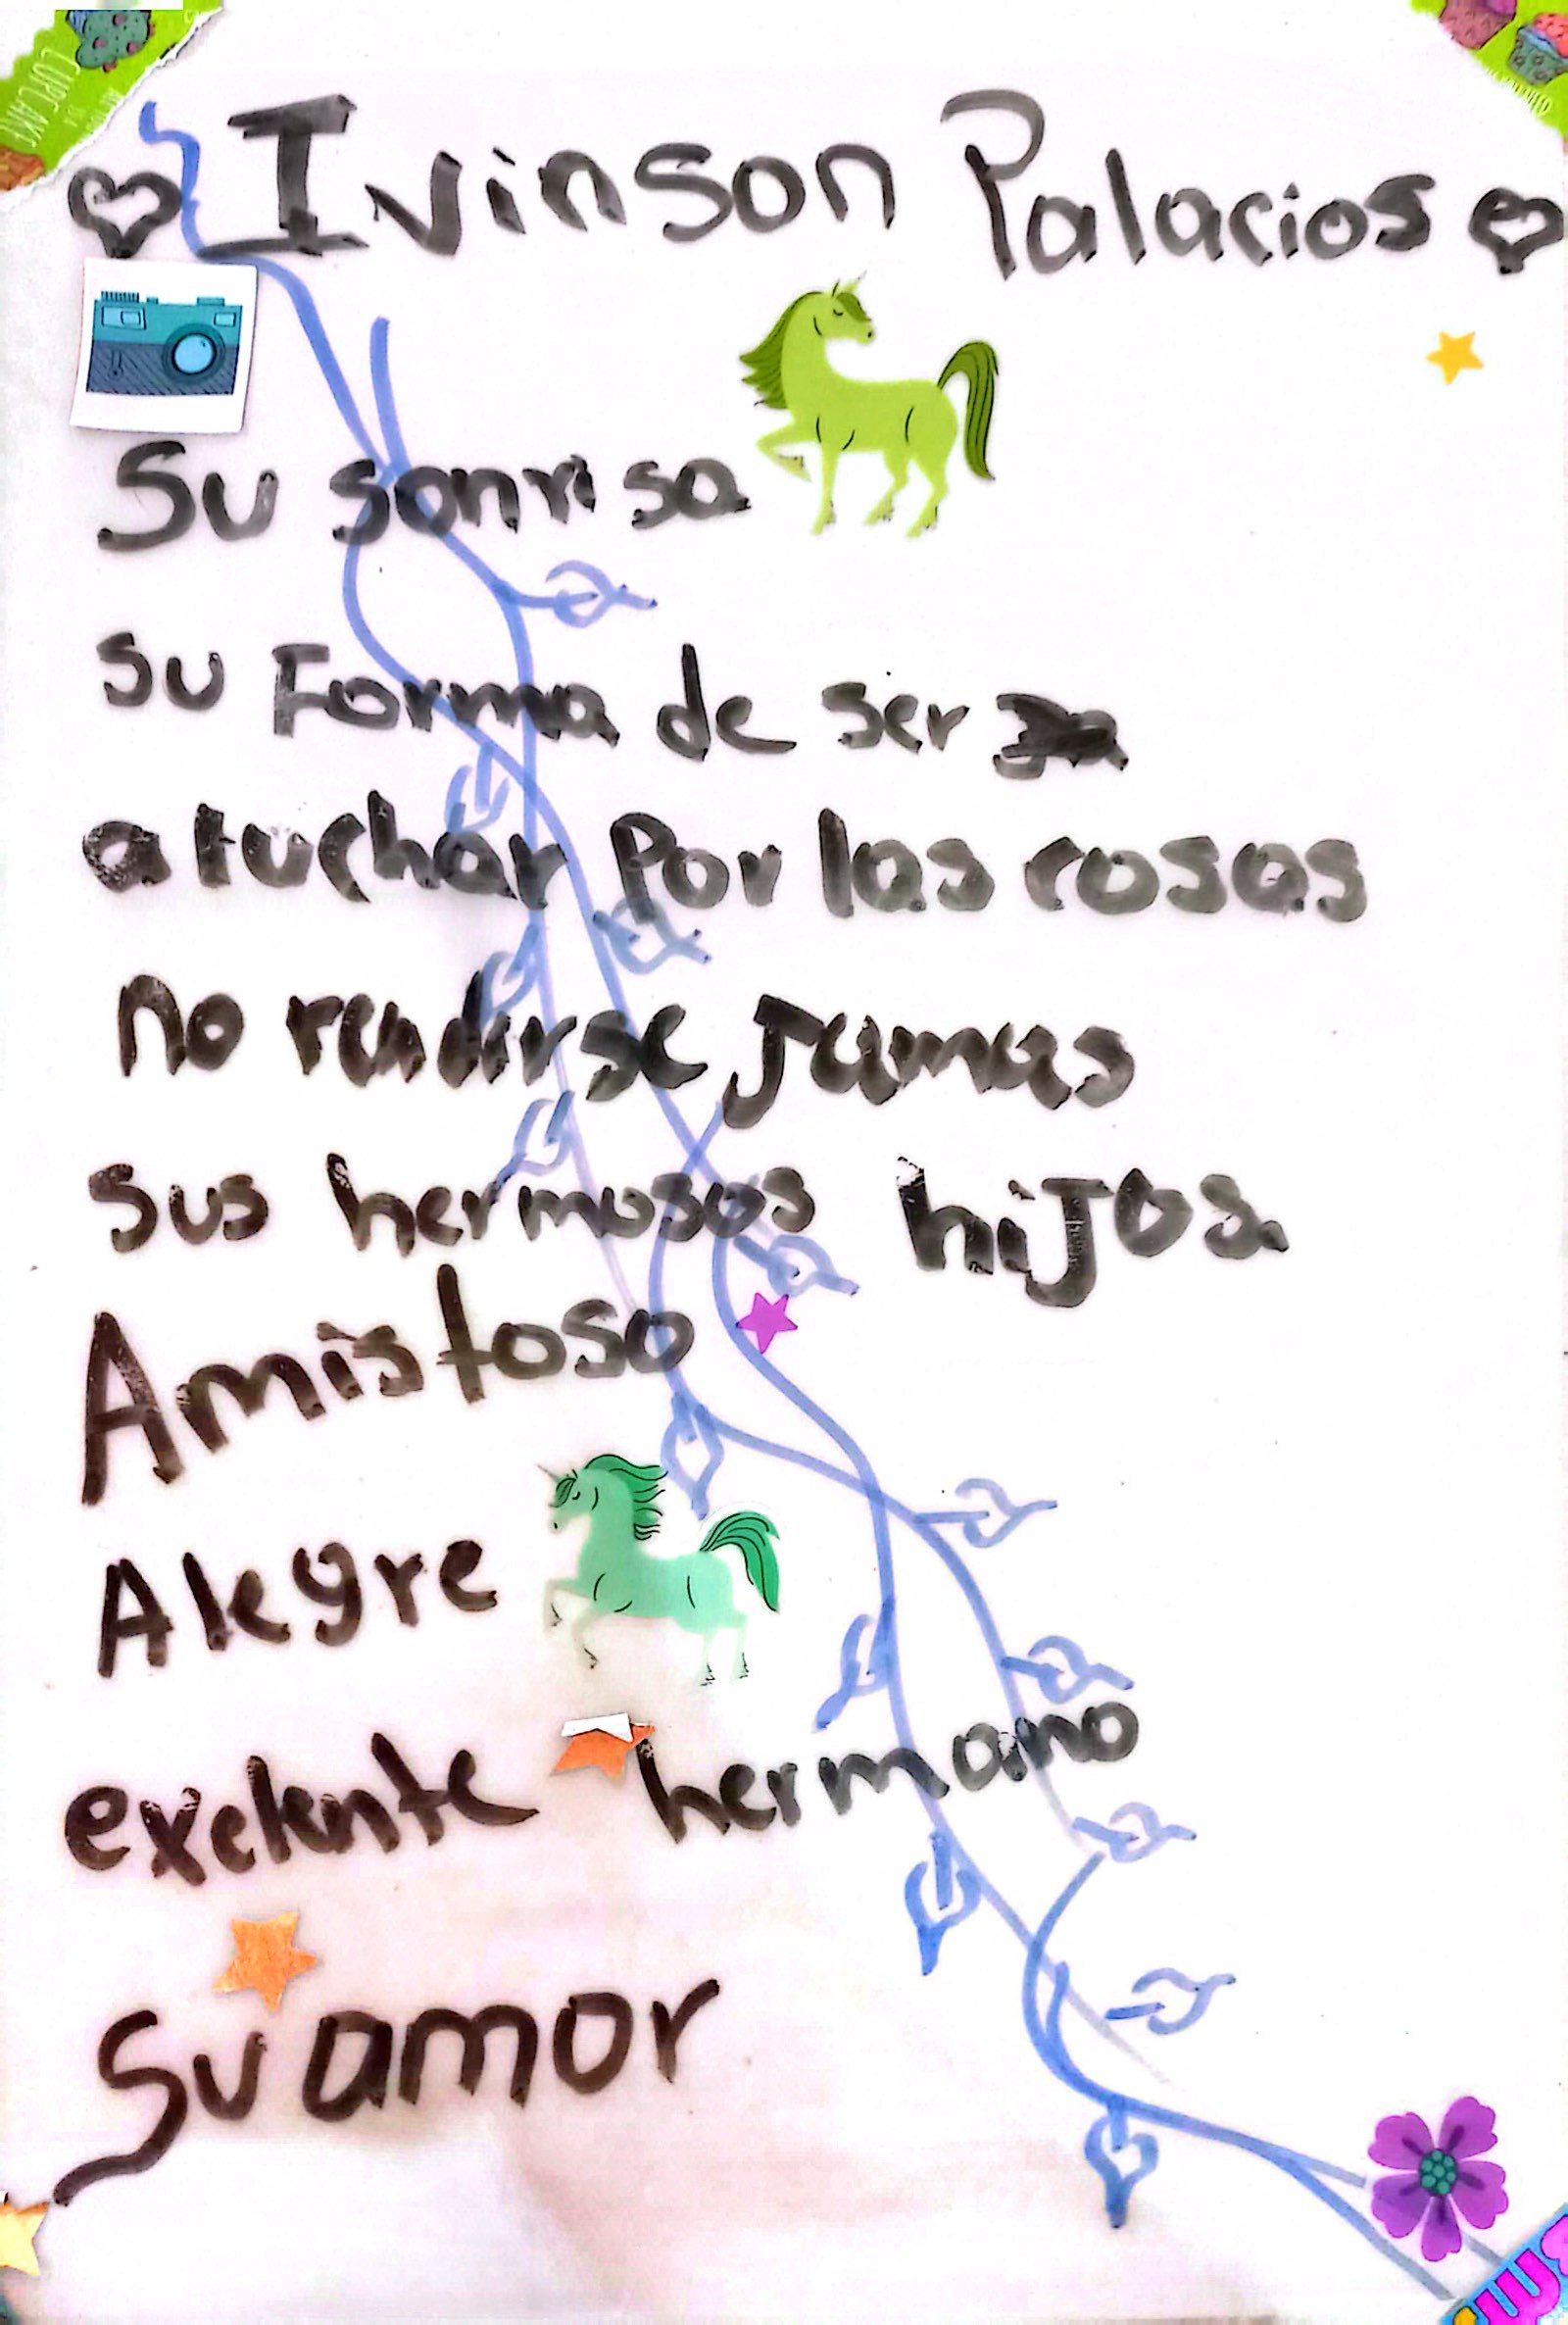 CUPCAKE
Ivinson Palacios
Su sonrisa
su Forma de ser
a luchar Por las cosas
no rendirse Jamas
Sus hermosos hiJos.
Amistoso
Alegre
exelente hermano
Su amor